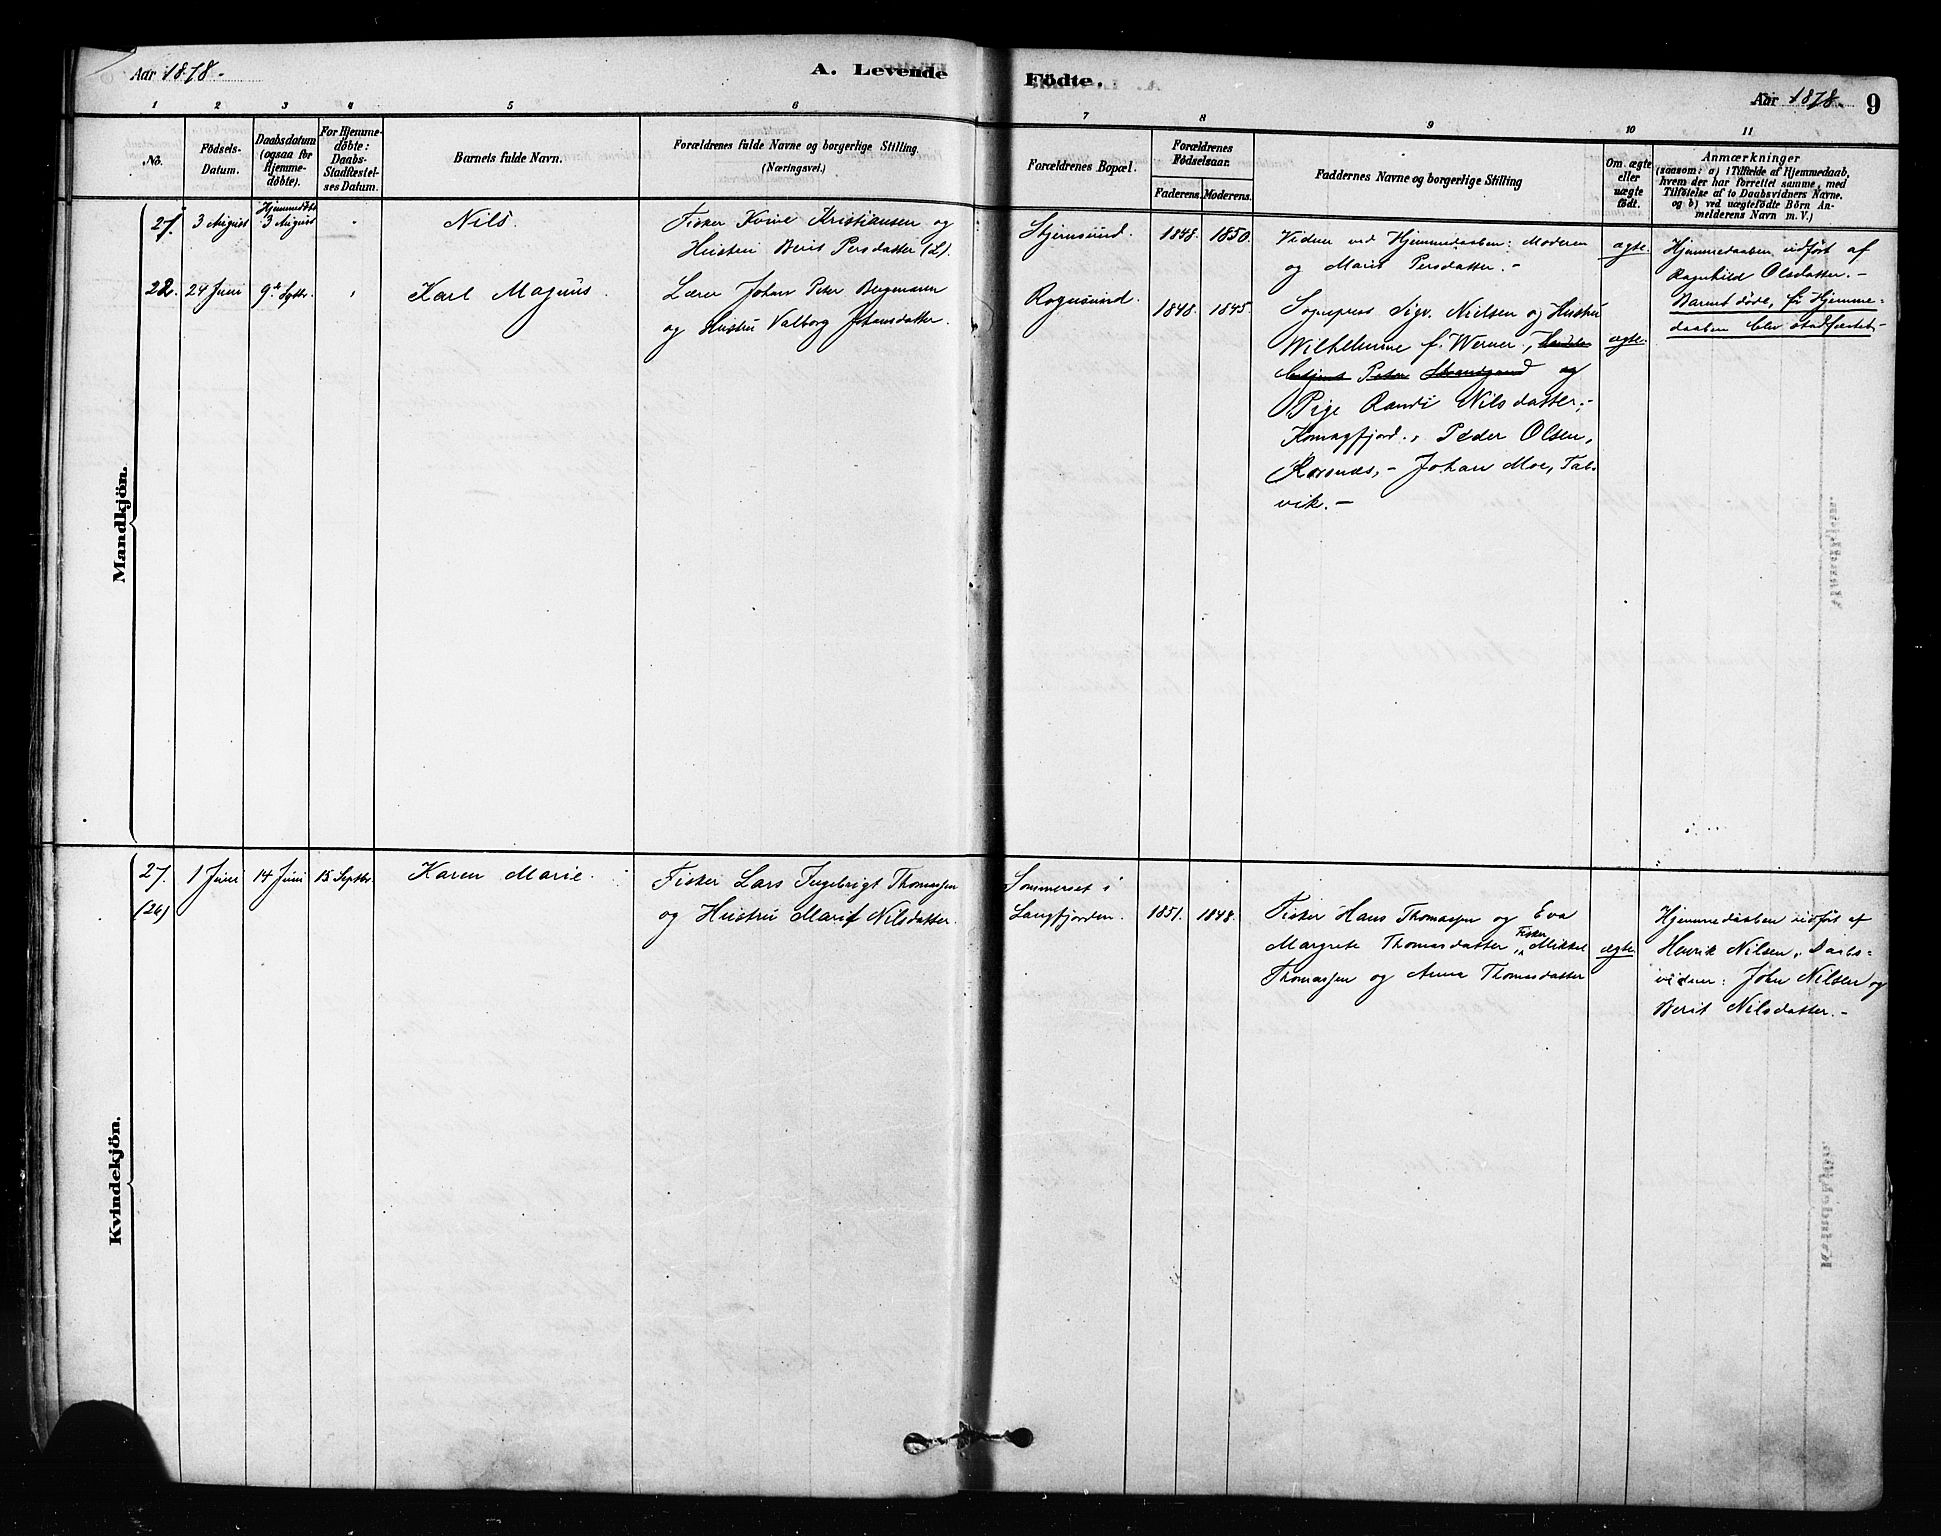 Aar 1878. A. Levende Födte. Aar 1878. 9
1 2 3 4 5 6 7 8 9 10 11
No.
Födsels-Datum.
Daabsdatum (ogsaa for Hjemme-döbte).
For Hjemme-döbte: Daabs-Stadfæstel-ses Datum.
Barnets fulde Navn.
Forældrenes fulde Navne og borgerlige Stilling.
(Næringsvei.)
Forældrenes Bopæl.
Forældrenes Födselsaar.
Faderens. Moderens.
Faddernes Navne og borgerlige Stilling
Om ægte eller uægte födt.
Anmærkninger
(saasom: a) i Tilfælde af Hjemmedaab,
hvem der har forrettet samme, med
Tilföielse af to Daabsvidners Navne.
og b) ved uægtefödte Börn An-
melderens Navn m. V.)
Mandkjön.
27. 3 August Hjemmedöbt 3 August Nils.
Fisker Kristiansen og
Hustru Berit Persdatter (L).
Stjernsund. 1848. 1850.
Vidner ved Hjemmedaaben: Moderen
og Marit Persdatter. -
ægte.
Hjemmedaaben udfört af
Ragnhild Olsdatter. -
Barnet döde, för Hjemme-
daaben blev stadfæstet. -
22. 24 Juni 9de Septbr. Karl Magnus.
Lærer Johan Peter Bergmann
og Hustru Valborg Johansdatter.
Rognsund. 1848. 1845.
Sognepræst Sigv. Nielsen og Hustru
Wilhelmine f. Werner.,
Peter Strandgaard og
Pige Randi Nilsdatter, -
Komagfjord., Peder Olsen,
Korsnæs, - Johan Moe, Tal-
vik. -
ægte.
Kvindekjön.
27. (26) 1 Juni 14 Juni 15 Septbr. Karen Marie.
Fisker Lars Ingebrigt Thomassen
og Hustru Marit Nilsdatter.
Sommerset i
Langfjorden. 1851. 1848.
Fisker Hans Thomassen og Eva
Margrete Thomasdatter, Fisker Mikkel
Thomassen og Anna Thomasdatter
ægte.
Hjemmedaaben udfört af
Henrik Nilsen. Daabs-
vidner: John Nilsen og
Berit Nilsdatter. -